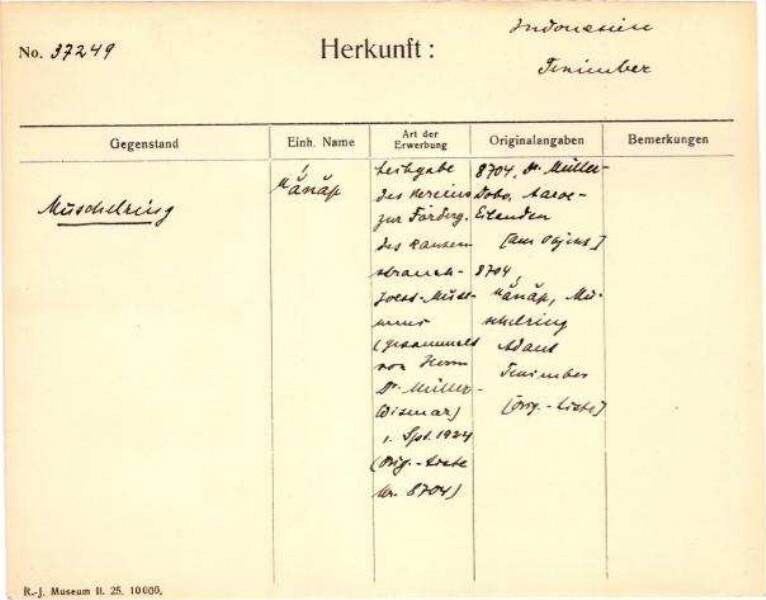 No. 37249
Herkunft:
Indonesien
Tenimber
Gegenstand
Einh. Name
Art der
Erwerbung
Originalangaben
Bemerkungen
Muschelring
Leihgabe
des Vereins
zur Förderg.
des Rauten
strauch-
Joest-Muse-
ums
(gesammelt
von Herrn
Dr. Müller-
Wismar)
1. Spt. 1924
(Orig.-Liste
Nr. 8704)
8704, Dr. Müller-
Dobo, Aaroe-
Eilanden
[am Objekt]
8704,
Mu-
schelring
Adaut
Tenimber
[Orig.-Liste]
R.-J. Museum II. 25. 10000.